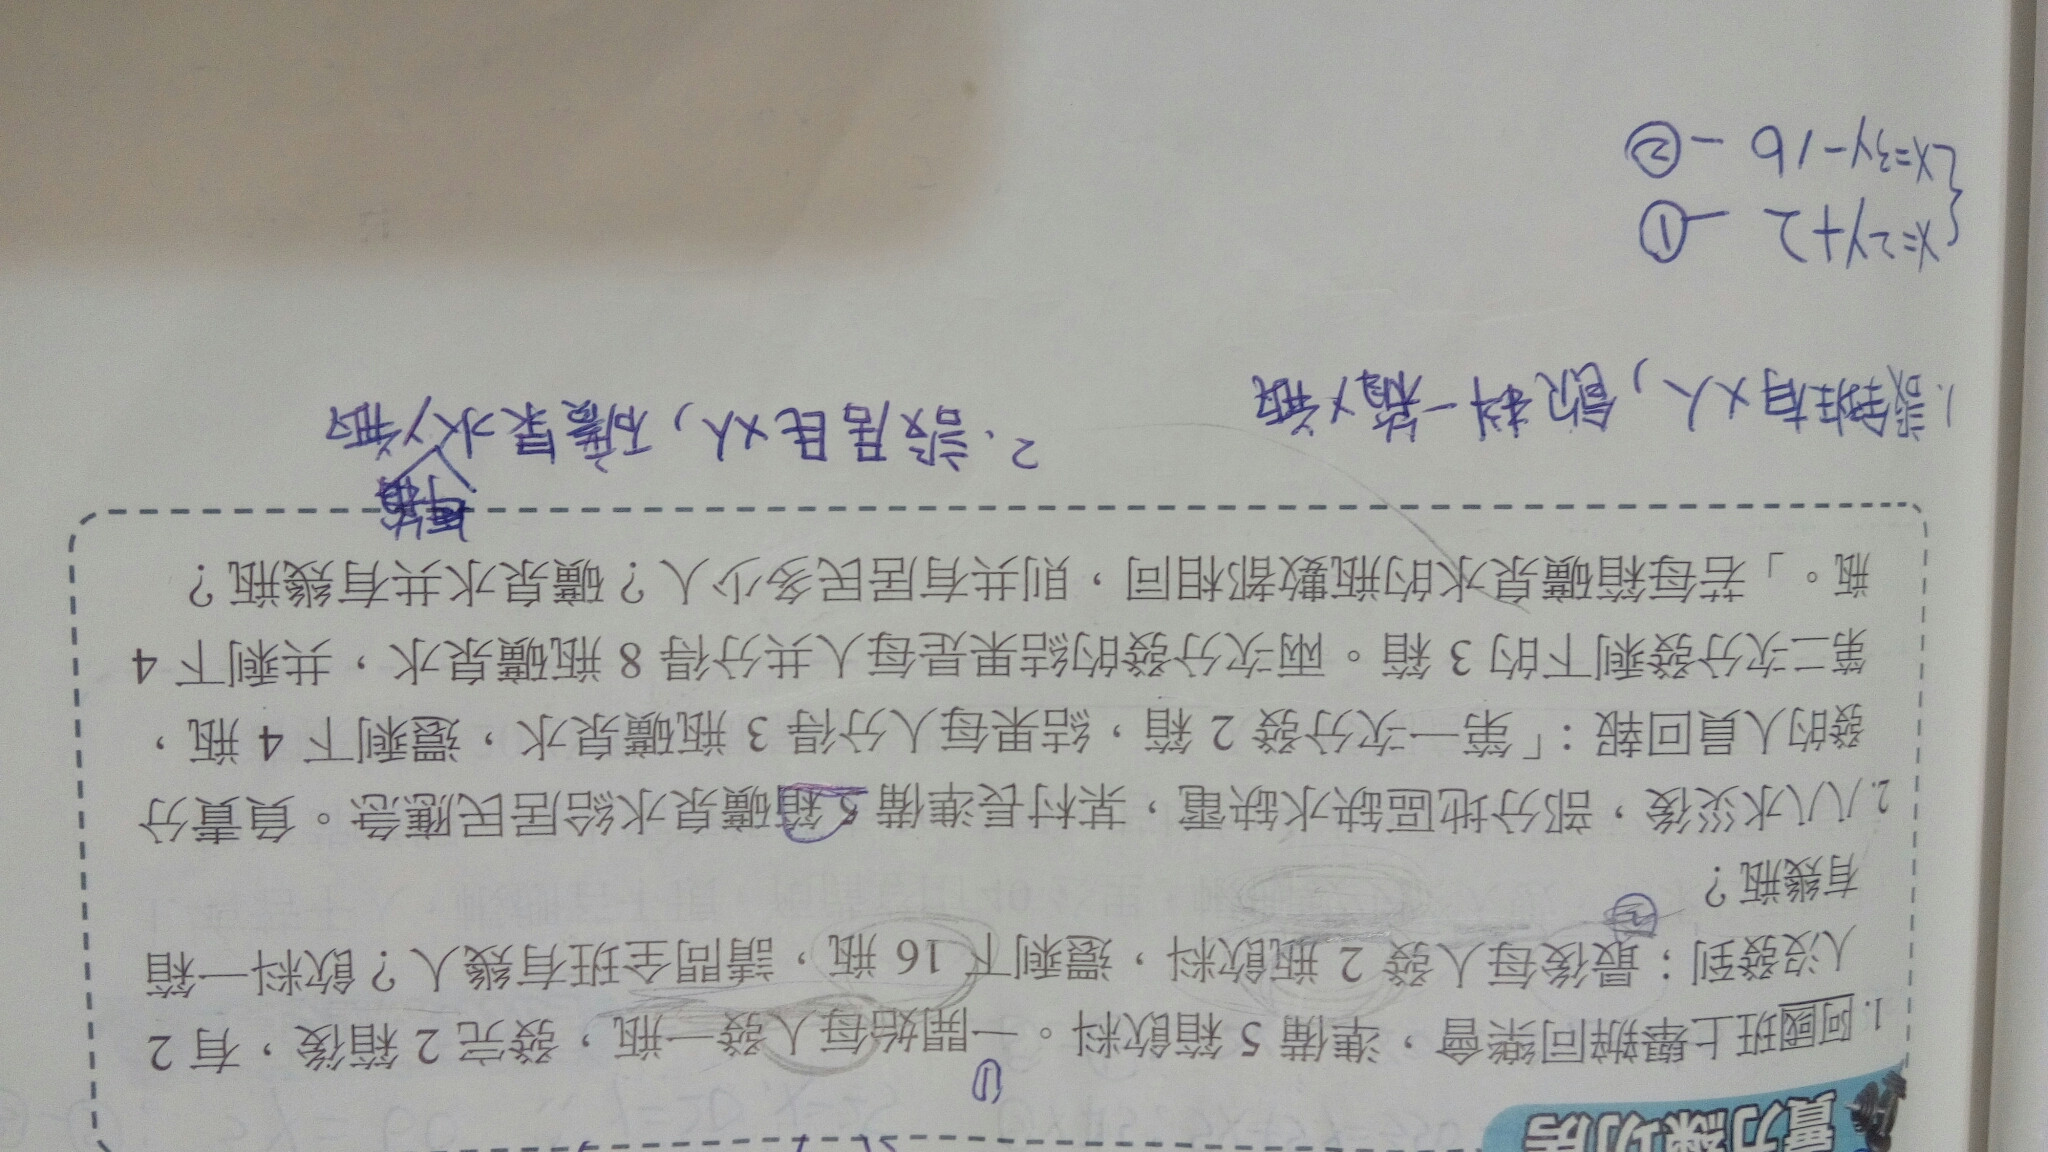 實力練功房
(1)
1. 阿國班上舉辦同樂會，準備 5 箱飲料。一開始每人發一瓶，發完 2 箱後，有 2
人沒發到；最後每人發 2 瓶飲料，還剩下 16 瓶，請問全班有幾人？飲料一箱
②
有幾瓶？
2. 八八水災後，部分地區缺水缺電，某村長準備 5 箱礦泉水給居民應急。負責分
發的人員回報：「第一次分發 2 箱，結果每人分得 3 瓶礦泉水，還剩下 4 瓶，
第二次分發剩下的 3 箱。兩次分發的結果是每人共分得 8 瓶礦泉水，共剩下 4
瓶。」若每箱礦泉水的瓶數都相同，則共有居民多少人？礦泉水共有幾瓶？
1. 設全班有x人，飲料一箱y瓶
x=2y+2 -①
x=3y-16 -②
2. 設居民x人，礦泉水每箱y瓶